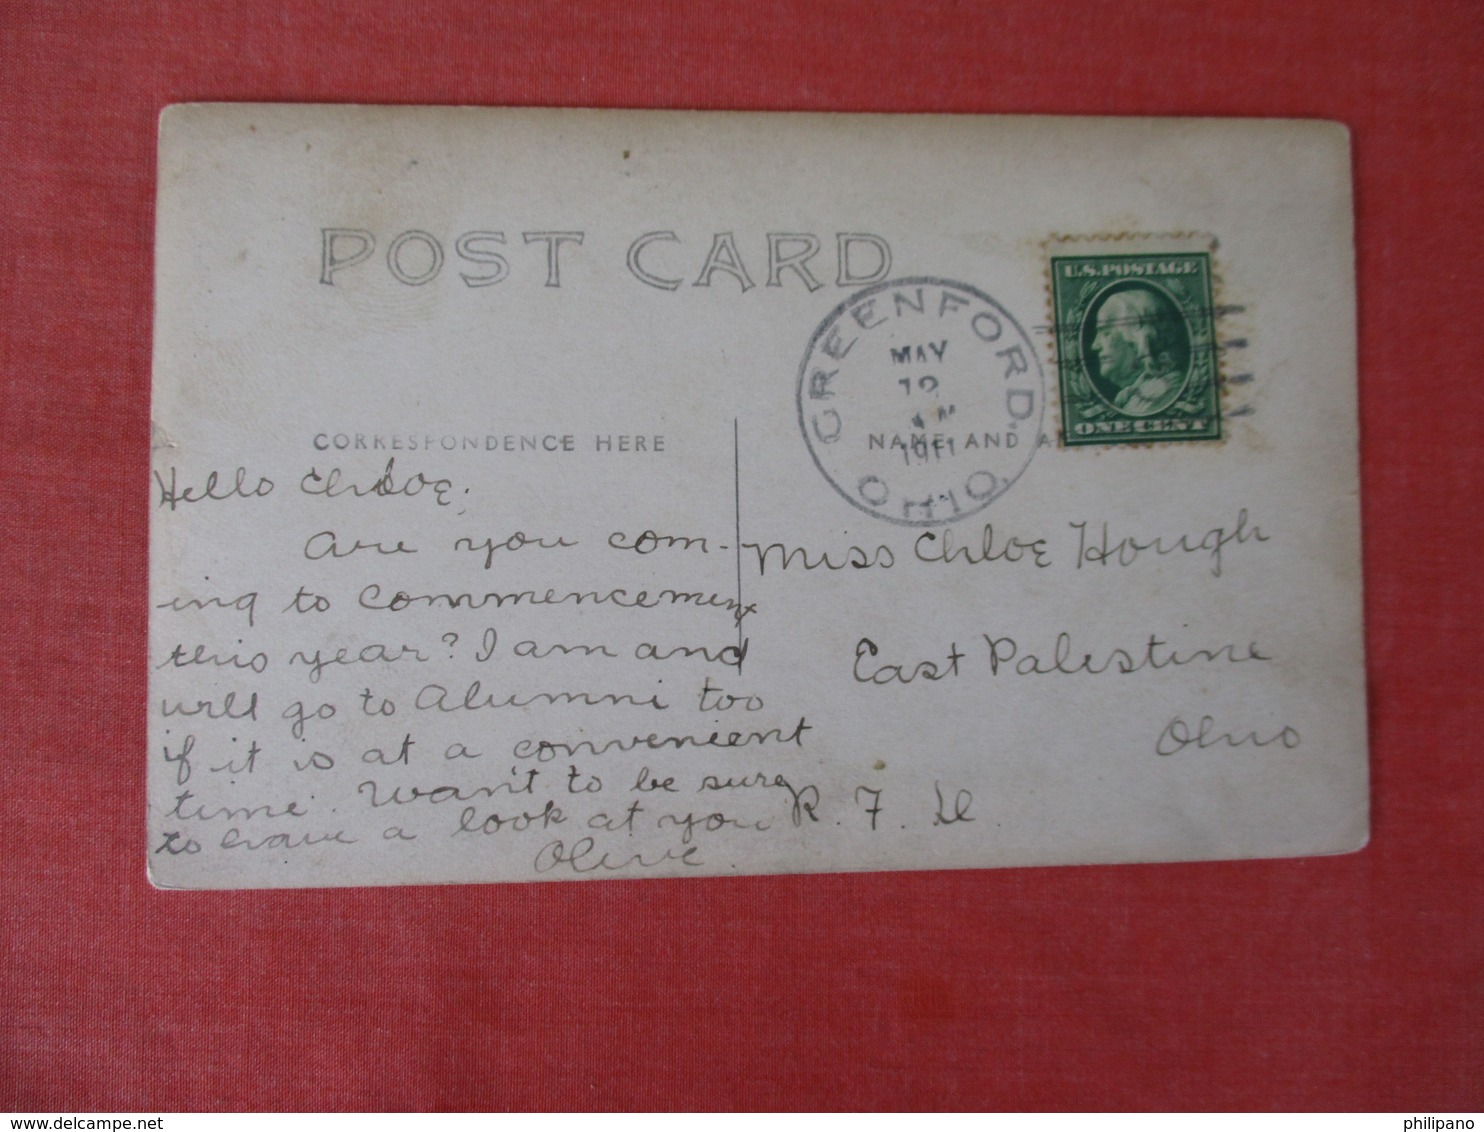 POST CARD
GREENFORD.
OHIO.
MAY
12
AM
1911
U.S. POSTAGE
ONE CENT
CORRESPONDENCE HERE
NAME AND A
Hello Chloe.
Are you com-
ing to Commencement
this year? I am and
will go to Alumni too
if it is at a convenient
time. Want to be sure
to have a look at you
Olive.
Miss Chloe Hough
East Palestine
Ohio
R. F. D.
philipano